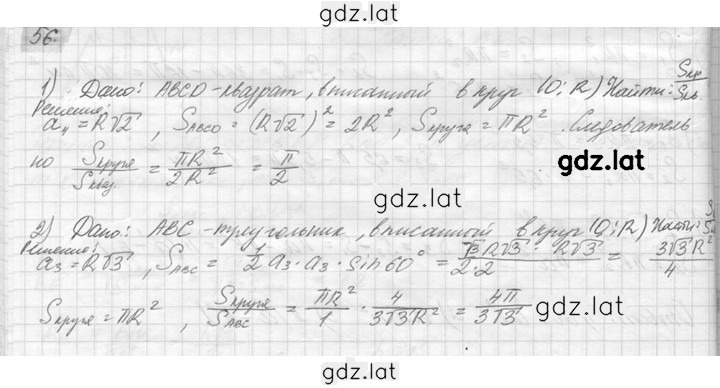 gdz.lat
56.
1) Дано: ABCD-квадрат, вписанный в круг (O; R) Найти: Sкр/Sкв.
Решение:
a₄ = R√2 , S_ABCD = (R√2)² = 2R² , Sкруга = πR² . Следователь
но Sкруга/Sквад. = πR²/2R² = π/2
gdz.lat
gdz.lat
2) Дано: ABC - треугольник, вписанный в круг (O; R) Найти:
Решение:
a₃ = R√3 , S_ABC = 1/2 a₃ · a₃ · sin 60° = √3 R√3 · R√3/2·2 = 3√3R²/4
Sкруга = πR² , Sкруга/S_ABC = πR²/1 · 4/3√3R² = 4π/3√3
gdz.lat
gdz.lat